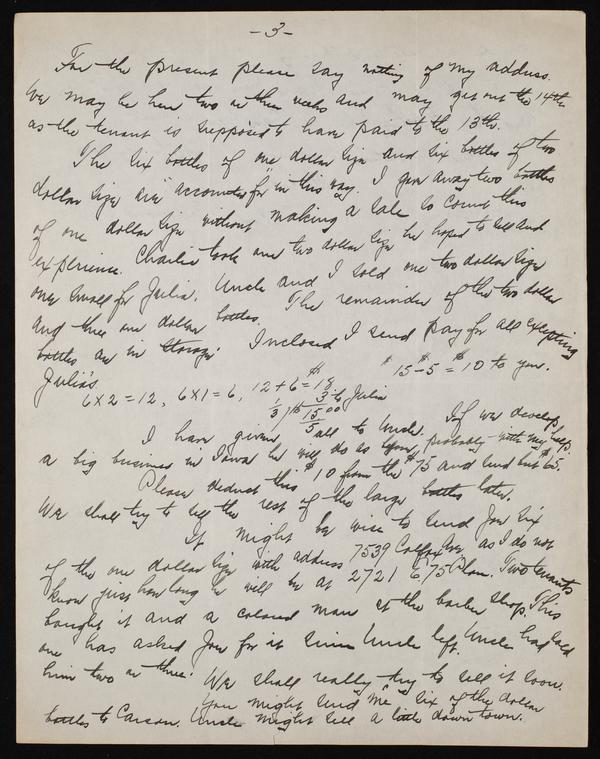 -3-
For the present please say nothing of my address.
We may be here two or three weeks and may get out the 14th
as the tenant is supposed to have paid to the 13th.
The six bottles of "one dollar size and six bottles of two
dollar size are" accounted for in this way. I gave away two bottles
of one dollar size without making a sale so count this
experience. Charlie took one two dollar size he hoped to sell and
one small for Julia. Uncle and I sold one two dollar size
and three one dollar bottles. The remainder of the two dollar
bottles are in storage. Inclosed I send pay for all excepting
Julia's. $15-$5=$10 to you.
6x2=12, 6x1=6, 12+6=$18
3 to Julia
1/3) $15 15.00
5
I have given all to Uncle. If we develop
a big business in Iowa he will do as you, probably with my help.
Please deduct this $10 from the $75 and send but $65.
We shall try to sell the rest of the large bottles later.
It might be wise to send Joe six
of the one dollar size with address 7539 Colfax Ave, as I do not
know just how long he will be at 2721 E. 75 Two tenants
bought it and a colored man at the barber shop. This
one has asked Joe for it since Uncle left. Uncle had sold
him two or three. We shall really try to sell it soon.
You might send "me" six of the dollar
bottles to Carson. Uncle might sell a little down town.